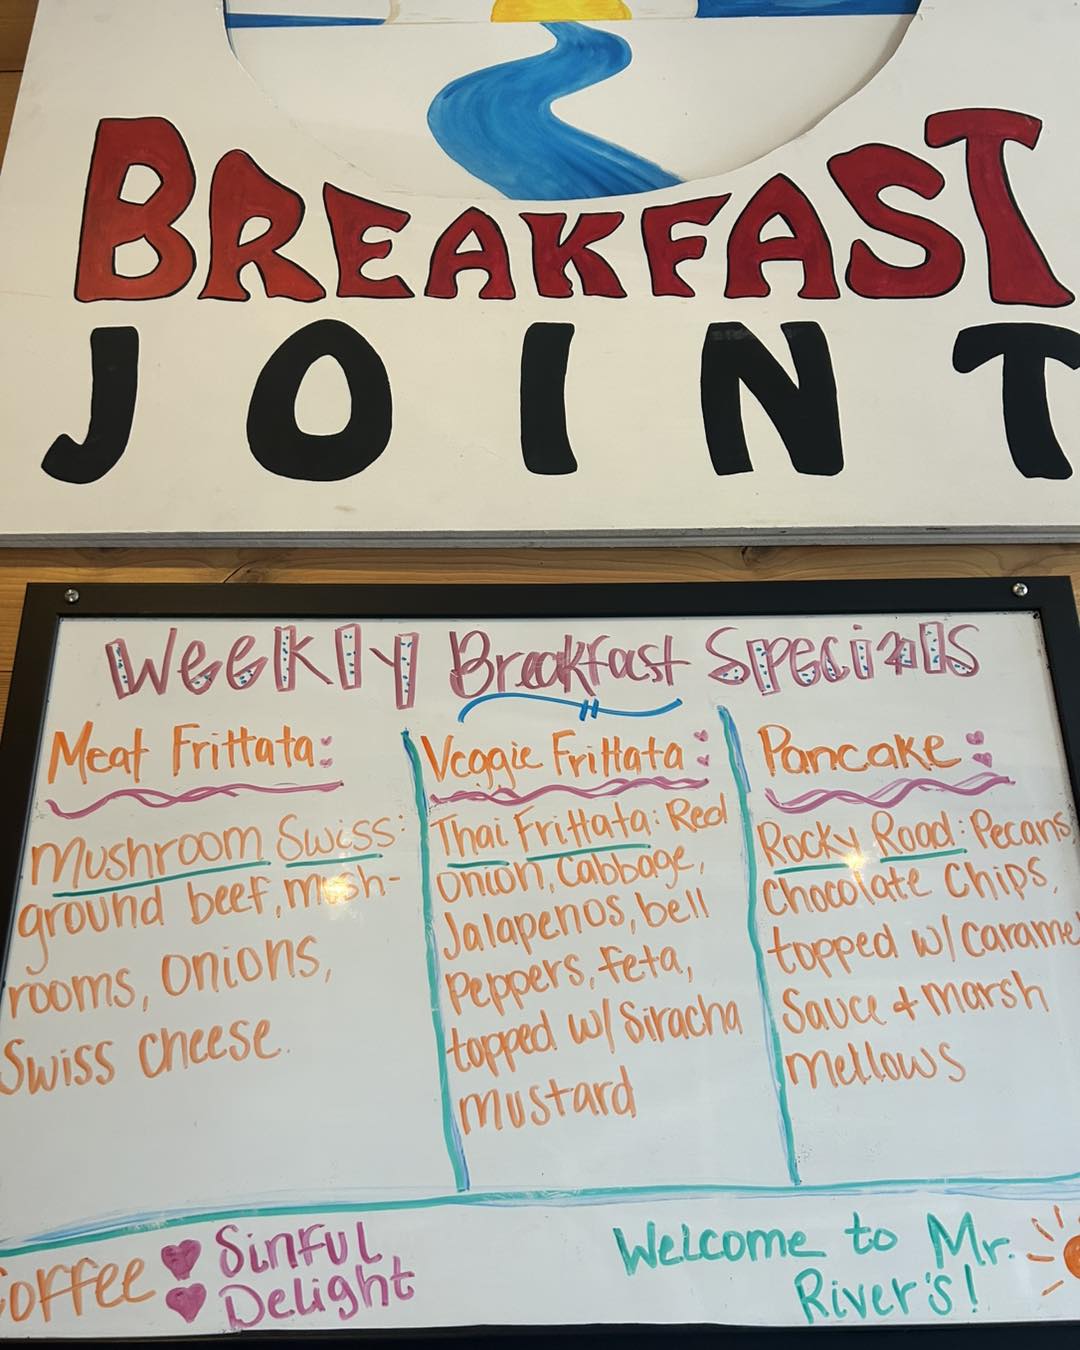 BREAKFAST
JOINT
Weekly Breakfast Specials
Meat Frittata:
Mushroom Swiss:
ground beef, mush-
rooms, onions,
Swiss cheese.
Veggie Frittata:
Thai Frittata: Red
onion, cabbage,
Jalapenos, bell
peppers, feta,
topped w/ Siracha
mustard
Pancake:
Rocky Road: Pecans,
Chocolate Chips,
topped w/ caramel
Sauce + marsh
mellows
Coffee: Sinful
Delight
Welcome to Mr.
River's!